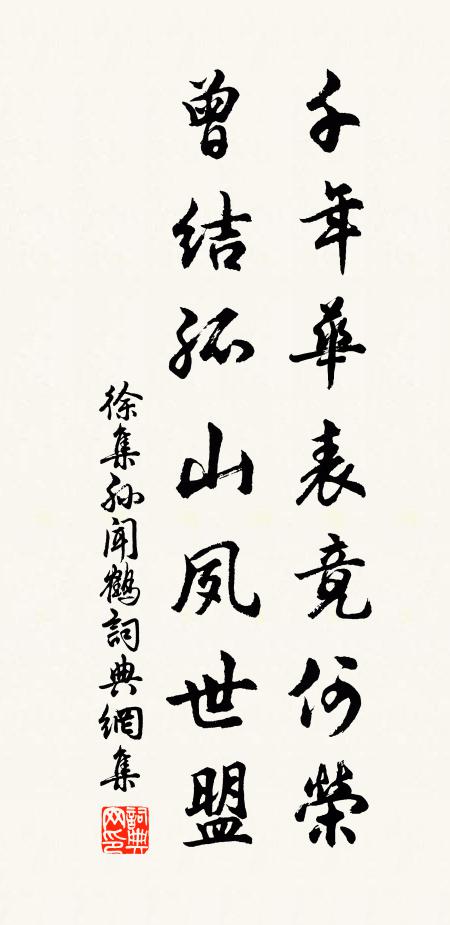 千年華表竟何榮
曾結孤山夙世盟
徐集孙闻鶴詞典網集
詞典网印